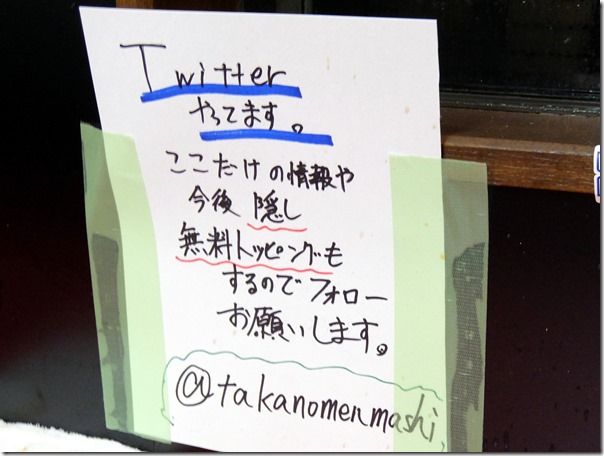 Twitter
やってます。
ここだけの情報や
今後 隠し
無料トッピングも
するのでフォロー
お願いします。
@takanomenmashi